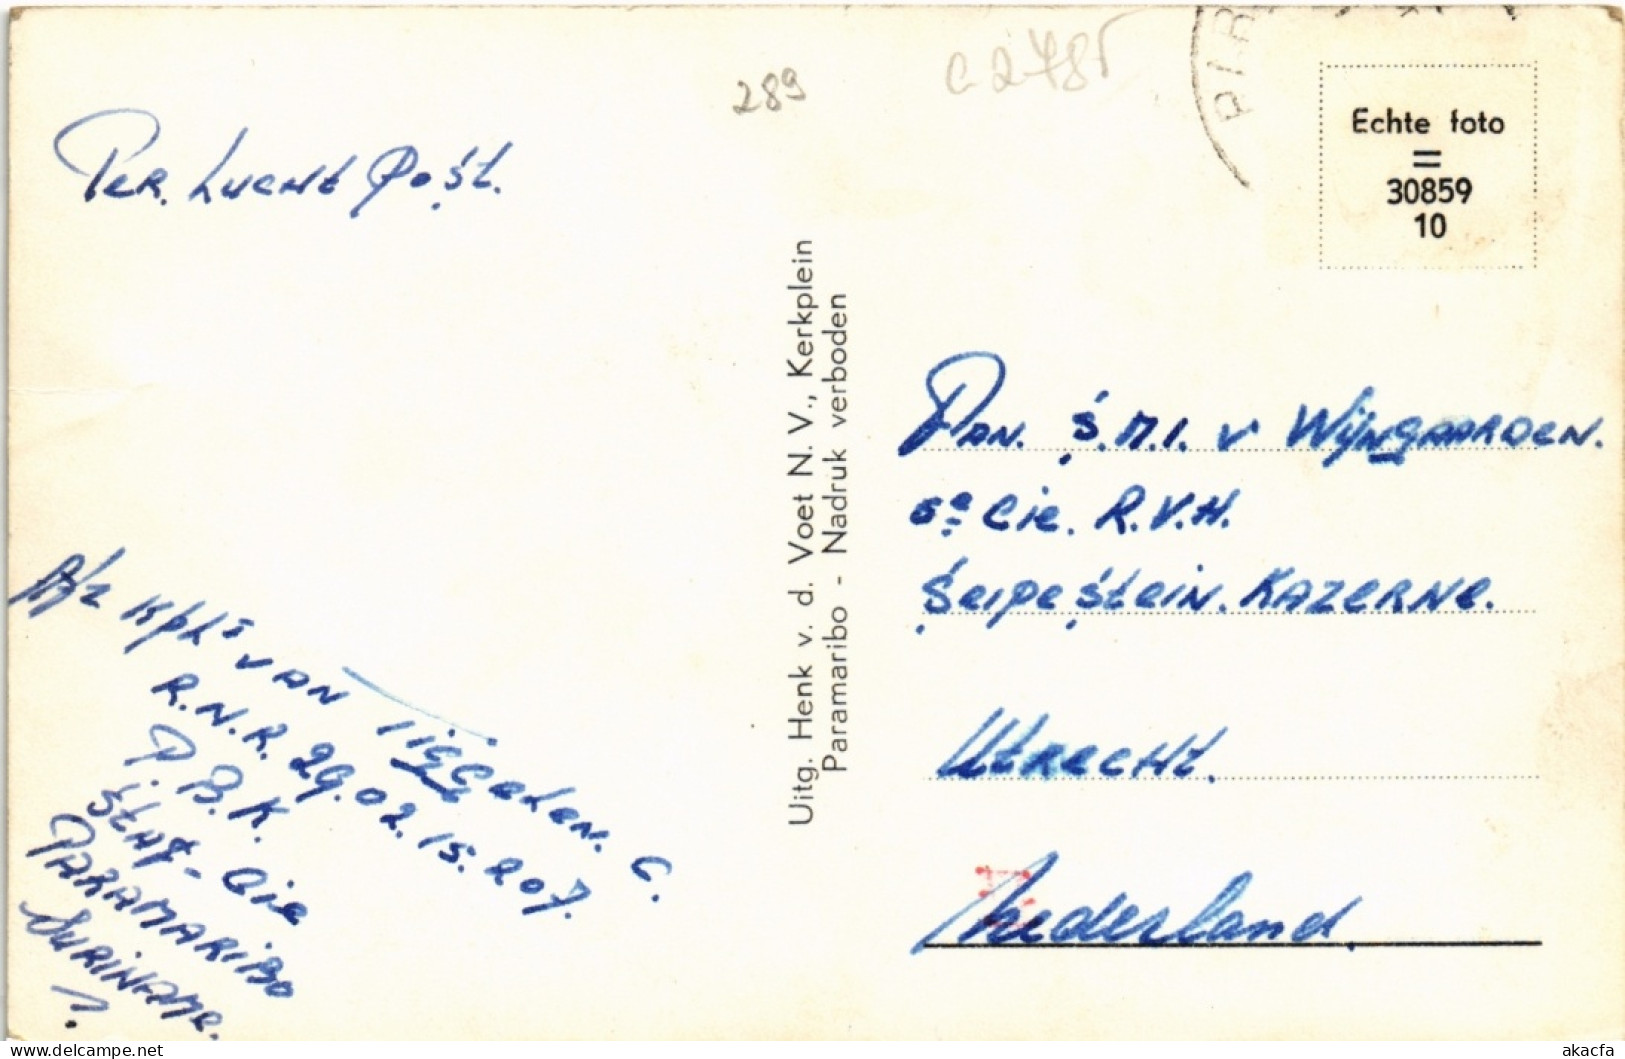 289
C 2485
PAR
Echte foto
=
30859
10
Per. Lucht Post.
Uitg. Henk v. d. Voet N. V., Kerkplein
Paramaribo - Nadruk verboden
Pan. S.M.I. v Wijngaarden.
5e Cie. R.V.H.
Seipestein. Kazerne.
Utrecht.
Nederland.
A/z Kpl I van Liggelen. C.
R.N.R. 29.02.15.207.
P.B.K.
Staf - Cie
Paramaribo
Suriname.
akacfa
delcampe.net